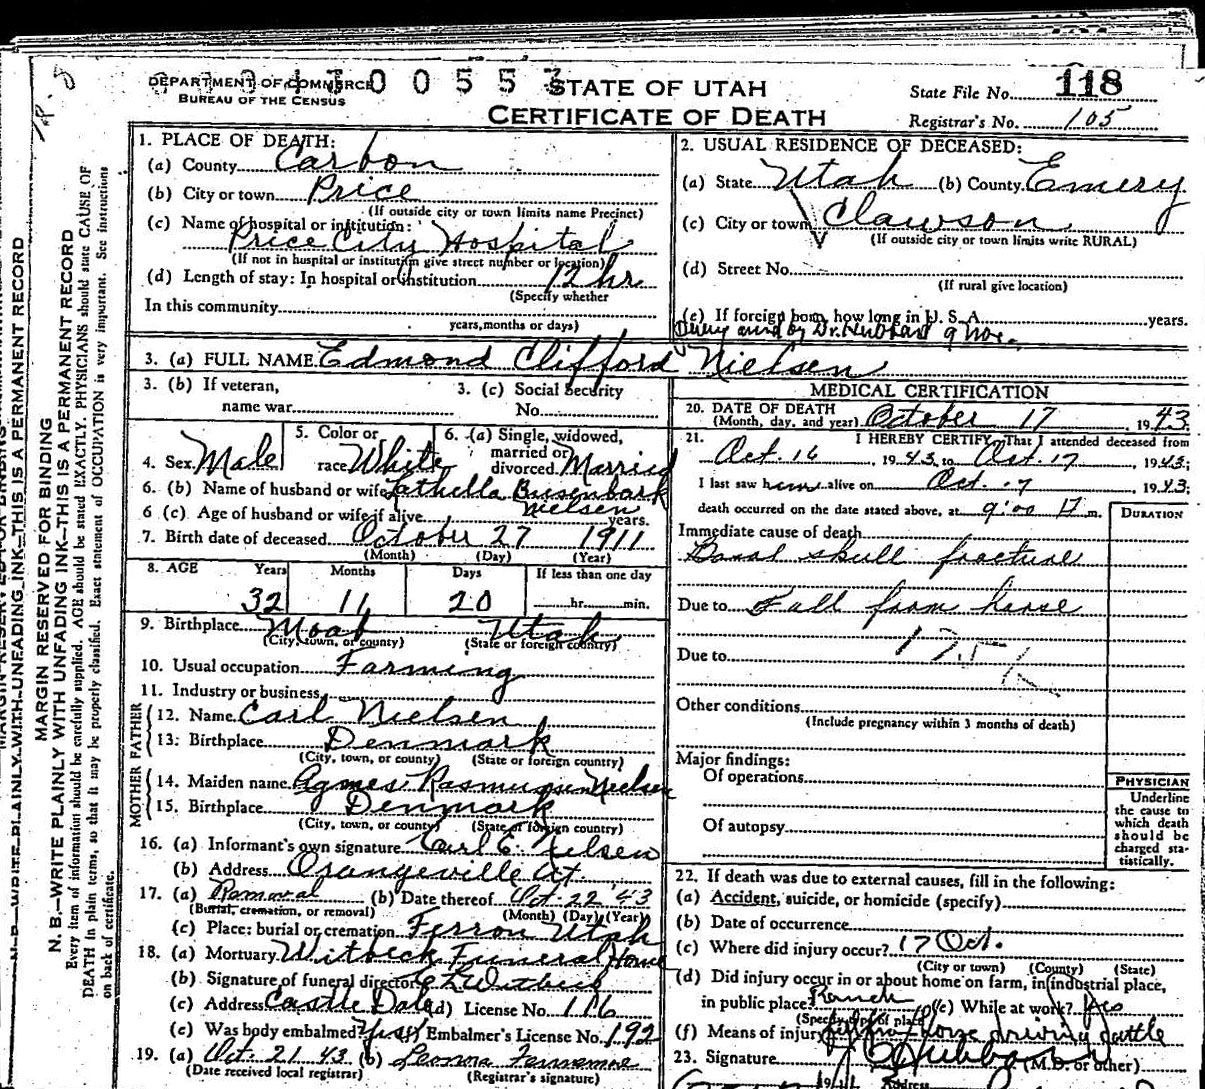 DEPARTMENT OF COMMERCE
BUREAU OF THE CENSUS
0 0 5 5
STATE OF UTAH
CERTIFICATE OF DEATH
State File No. 118
Registrar's No. 105
MARGIN RESERVED FOR BINDING
N. B.—WRITE PLAINLY WITH UNFADING INK—THIS IS A PERMANENT RECORD
Every item of information should be carefully supplied. AGE should be stated EXACTLY. PHYSICIANS should state CAUSE OF
DEATH in plain terms, so that it may be properly classified. Exact statement of OCCUPATION is very important. See instructions
on back of certificate.
1. PLACE OF DEATH:
(a) County Carbon
(b) City or town Price
(If outside city or town limits name Precinct)
(c) Name of hospital or institution:
Price City Hospital
(If not in hospital or institution give street number or location)
(d) Length of stay: In hospital or institution 12 hr
(Specify whether
In this community
years, months or days)
2. USUAL RESIDENCE OF DECEASED:
(a) State Utah (b) County Emery
(c) City or town Clawson
(If outside city or town limits write RURAL)
(d) Street No.
(If rural give location)
(e) If foreign born, how long in U. S. A. years.
by Dr. Hubbard 9 Nov.
3. (a) FULL NAME Edmond Clifford Nielsen
3. (b) If veteran,
name war
3. (c) Social Security
No.
4. Sex Male
5. Color or
race White
6. (a) Single, widowed,
married or
divorced Married
6. (b) Name of husband or wife Lathella Busenbark
Nielsen
6 (c) Age of husband or wife if alive years.
7. Birth date of deceased October 27 1911
(Month) (Day) (Year)
8. AGE Years Months Days If less than one day
32 11 20 hr. min.
9. Birthplace Moab Utah
(City, town, or county) (State or foreign country)
10. Usual occupation Farming
11. Industry or business
FATHER
12. Name Carl Nielsen
13. Birthplace Denmark
(City, town, or county) (State or foreign country)
MOTHER
14. Maiden name Agnes Rasmussen Nielsen
15. Birthplace Denmark
(City, town, or county) (State or foreign country)
16. (a) Informant's own signature Carl E. Nielsen
(b) Address Orangeville Ut.
17. (a) Removal (b) Date thereof Oct. 22 43
(Burial, cremation, or removal) (Month) (Day) (Year)
(c) Place: burial or cremation Ferron Utah
18. (a) Mortuary Witbeck Funeral Home
(b) Signature of funeral director
(c) Address Castle Dale (d) License No. 116
(e) Was body embalmed? Yes Embalmer's License No. 192
19. (a) Oct. 21 43 (b) Leonora
(Date received local registrar) (Registrar's signature)
MEDICAL CERTIFICATION
20. DATE OF DEATH
(Month, day, and year) October 17, 1943
21. I HEREBY CERTIFY, That I attended deceased from
Oct. 16, 1943, to Oct. 17, 1943;
I last saw him alive on Oct. 17, 1943;
death occurred on the date stated above, at 9:00 m.
DURATION
Immediate cause of death
Basal skull fracture
Due to Fall from horse
Due to
Other conditions
(Include pregnancy within 3 months of death)
Major findings:
Of operations
Of autopsy
PHYSICIAN
Underline
the cause to
which death
should be
charged sta-
tistically.
22. If death was due to external causes, fill in the following:
(a) Accident, suicide, or homicide (specify)
(b) Date of occurrence
(c) Where did injury occur? 17 Oct.
(City or town) (County) (State)
(d) Did injury occur in or about home on farm, in industrial place,
in public place? Ranch (e) While at work? Yes
(Specify type of place)
(f) Means of injury horse driving cattle
23. Signature
(M.D. or other)